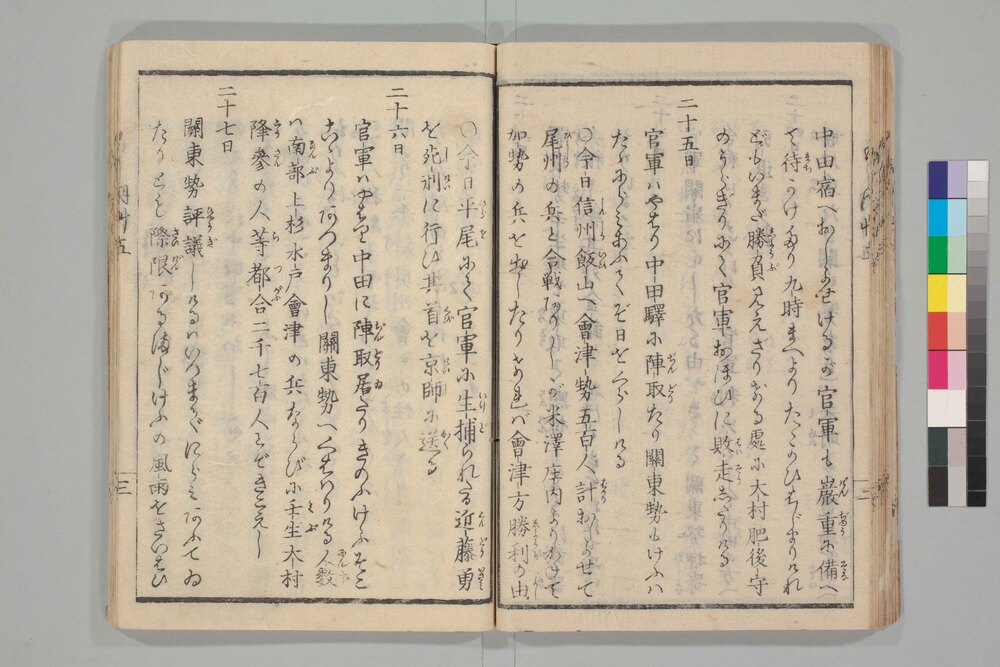 中田宿へおしよせけるが官軍も嚴重に備へ
て待かけたり九時まへよりたゝかひはじまりけれ
どもいまだ勝負見えざりける處に木村肥後守
のうらぎりにて官軍おほひに敗走したりける
二十五日
官軍ハやはり中田驛に陣取たり關東勢もけふハ
たがひにらみあふてぞ日をくらしける
〇今日信州飯山へ會津勢五百人計おしよせて
尾州の兵と合戰ありしが米澤庄内よりおひ〳〵
加勢の兵を出したりければ會津方勝利の由
〇今日平尾にて官軍に生捕られたる近藤勇
を死刑に行ひ其首を京師に送る
二十六日
官軍ハやはり中田に陣取居たりきのふけふそこ
こゝよりあつまりし關東勢へくはゝりける人数
ハ南部上杉水戸會津の兵ならびに壬生木村
降參の人等都合二千七百人とぞきこえし
二十七日
關東勢評議しけるハいつまでにらみあふてゐ
たりとも際限あるまじけふの風雨をさいはひ
三